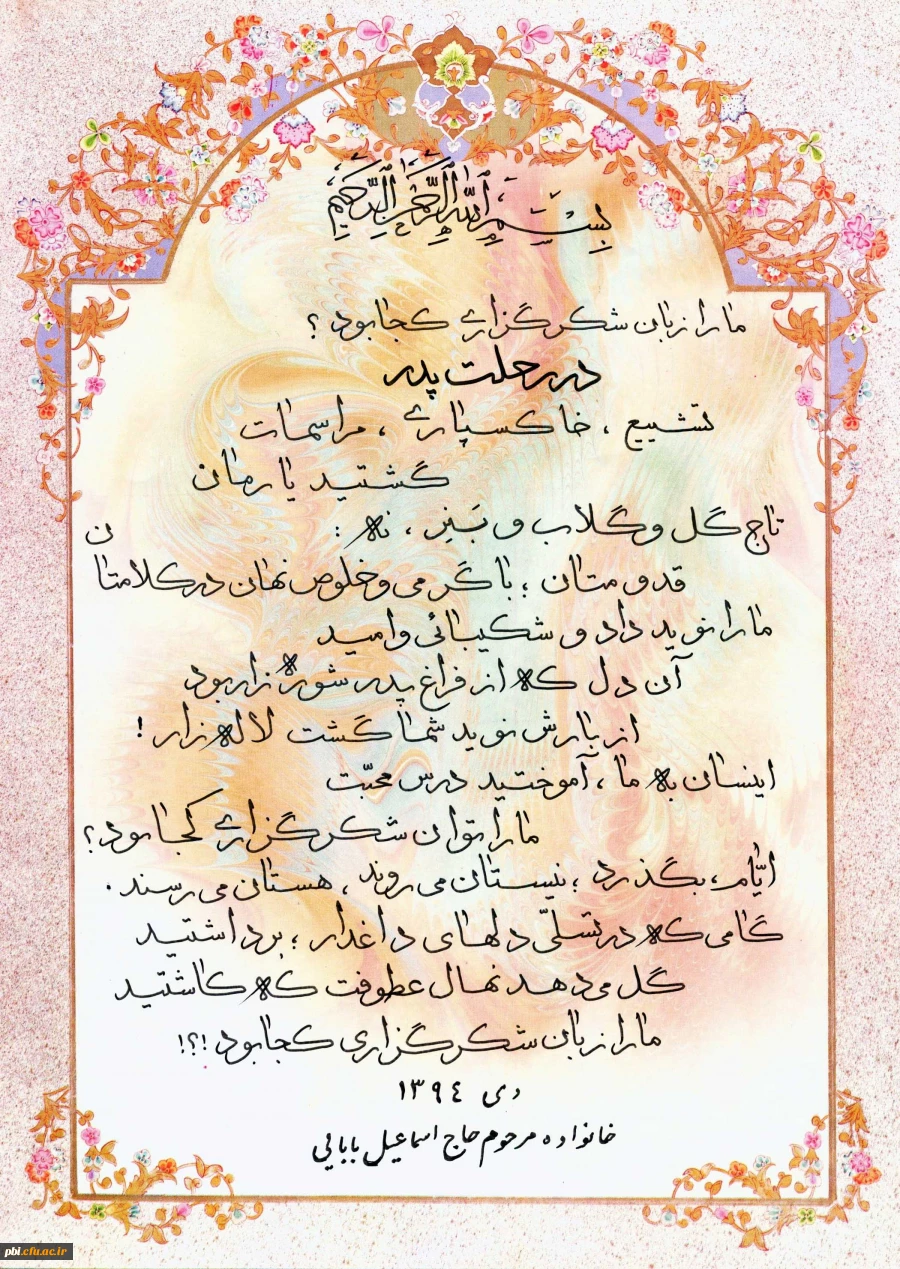 بِسْمِ اللَّهِ الرَّحْمَنِ الرَّحِيمِ
ما را زبان شکرگزاری کجا بود ؟
در رحلت پدر
تشییع ، خاکسپاری ، مراسمات
گشتید یارمان
تاج گل و گلاب و بَنِر ، نه :
قدومتان ؛ با گرمی و خلوص نهان در کلامتان
ما را نوید داد و شکیبائی و امید
آن دل که از فراغ پدر شوره زار بود
از بارش نوید شما گشت لاله زار !
اینسان به ما ، آموختید درس محبّت
ما را توان شکرگزاری کجا بود ؟
ایّام ، بگذرد ؛ نیستان می روند ، هستان می رسند .
گامی که در تسلّی دلهای داغدار ؛ برداشتید
گل می دهد نهال عطوفت که کاشتید
ما را زبان شکرگزاری کجا بود !؟!
دی ۱۳۹٤
خانواده مرحوم حاج اسماعیل بابایی
pbi.cfu.ac.ir